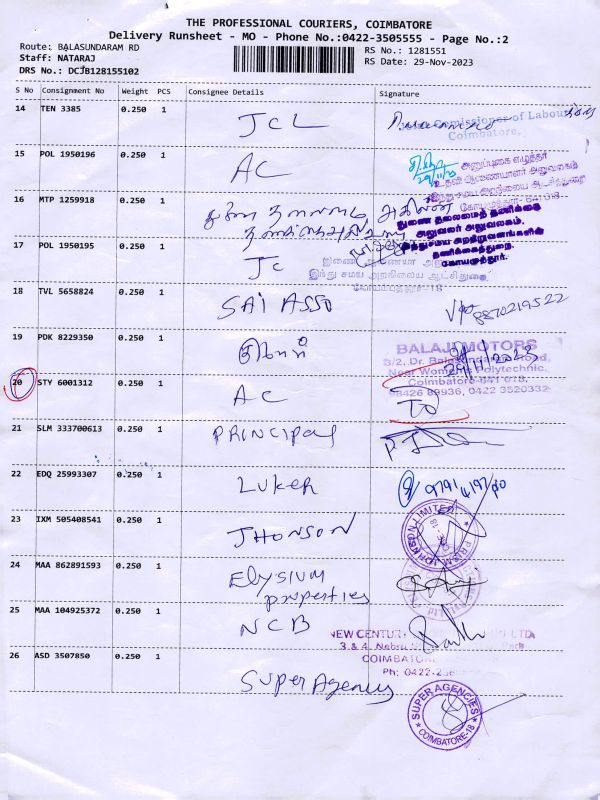 THE PROFESSIONAL COURIERS, COIMBATORE
Delivery Runsheet - MO - Phone No.:0422-3505555 - Page No.:2
Route: BALASUNDARAM RD
RS No.: 1281551
Staff: NATARAJ
RS Date: 29-Nov-2023
DRS No.: DCJB128155102
S No Consignment No Weight PCS Consignee Details Signature
14 TEN 3385 0.250 1 JCL
Commissioner of Labour
Coimbatore.
15 POL 1950196 0.250 1 AC
29/11/23
அனுப்புகை எழுத்தர்
உதவி ஆணையாளர் அலுவலகம்
இந்து சமய அறநிலைய ஆட்சித்துறை
16 MTP 1259918 0.250 1
துணை தலைமைத் தணிக்கை
அலுவலர் அலுவலகம்,
இந்துசமய அறநிறுவனங்களின்
தணிக்கைத்துறை,
கோயமுத்தூர்.
17 POL 1950195 0.250 1 JC
இணை ஆணையர்
இந்து சமய அறநிலைய ஆட்சிதுறை
கோயமுத்தூர்-18
18 TVL 5658824 0.250 1 SAI ASSO
8870219522
19 PDK 8229350 0.250 1
BALAJI MOTORS
29/11/2023
3/2, Dr. Balasundaram Road,
Near Women's Polytechnic,
Coimbatore-641 018.
98426 89936, 0422 3520332
20 STY 6001312 0.250 1 AC
21 SLM 333700613 0.250 1 PRINCIPAL
22 EDQ 25993307 0.250 1 LUKER
23 IXM 505408541 0.250 1 JHONSON
24 MAA 862891593 0.250 1 ELYSIUM
properties
25 MAA 104925372 0.250 1 NCB
NEW CENTURY
LTD.
3 & 4, Nehru
Park
COIMBATORE
Ph: 0422-236
26 ASD 3507850 0.250 1 SUPER Agency
SUPER AGENCIES
COIMBATORE-18